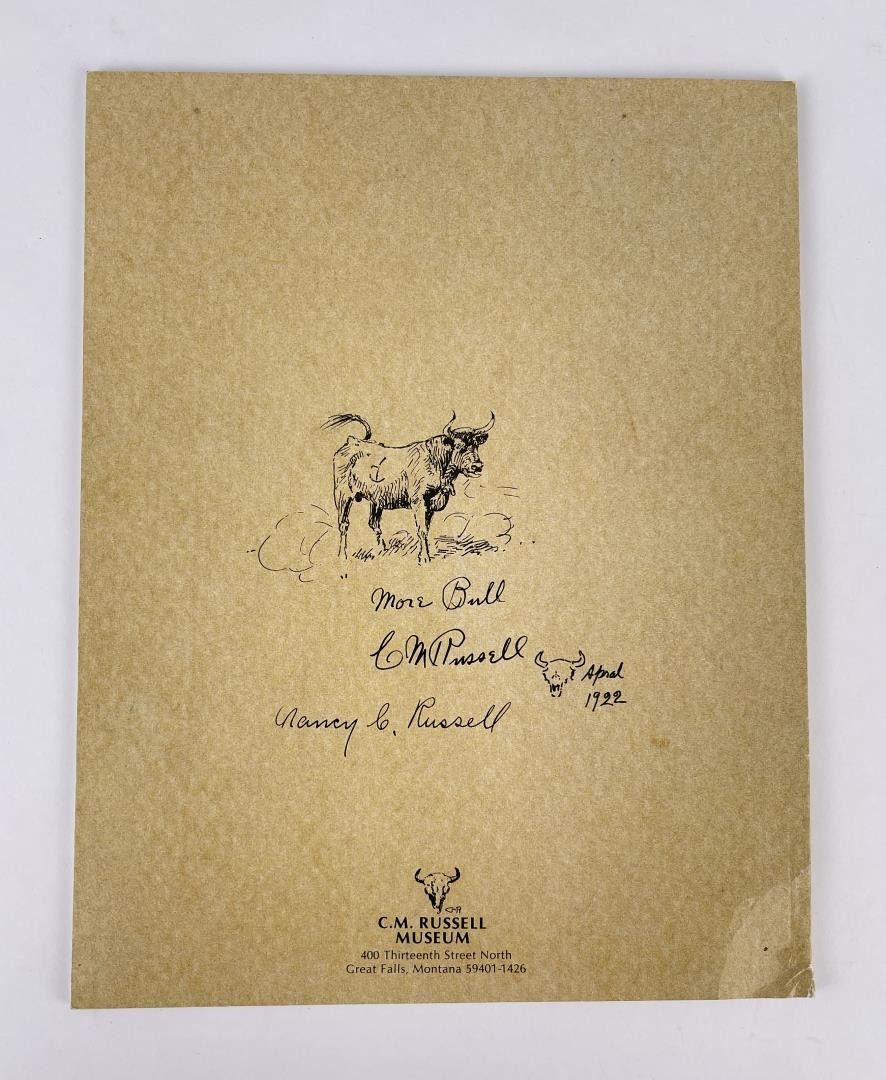 More Bull
CM Russell
April
1922
Nancy C. Russell
C.M. RUSSELL
MUSEUM
400 Thirteenth Street North
Great Falls, Montana 59401-1426